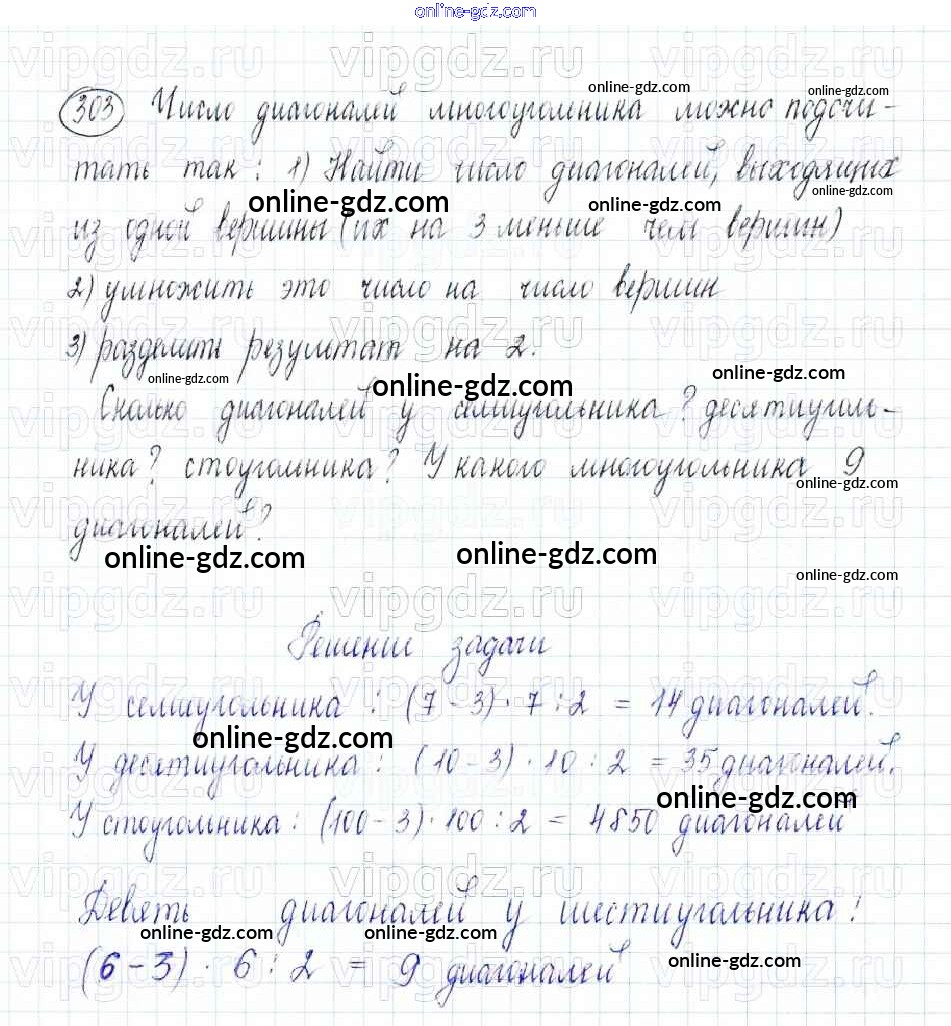 online-gdz.com
303 Число диагоналей многоугольника можно подсчи-
тать так: 1) Найти число диагоналей, выходящих
из одной вершины (их на 3 меньше чем вершин)
2) умножить это число на число вершин
3) разделить результат на 2.
Сколько диагоналей у семиугольника? десятиуголь-
ника? стоугольника? У какого многоугольника 9
диагоналей?
Решение задачи
У семиугольника: (7-3)·7:2 = 14 диагоналей.
У десятиугольника: (10-3)·10:2 = 35 диагоналей.
У стоугольника: (100-3)·100:2 = 4850 диагоналей
Девять диагоналей у шестиугольника:
(6-3)·6:2 = 9 диагоналей